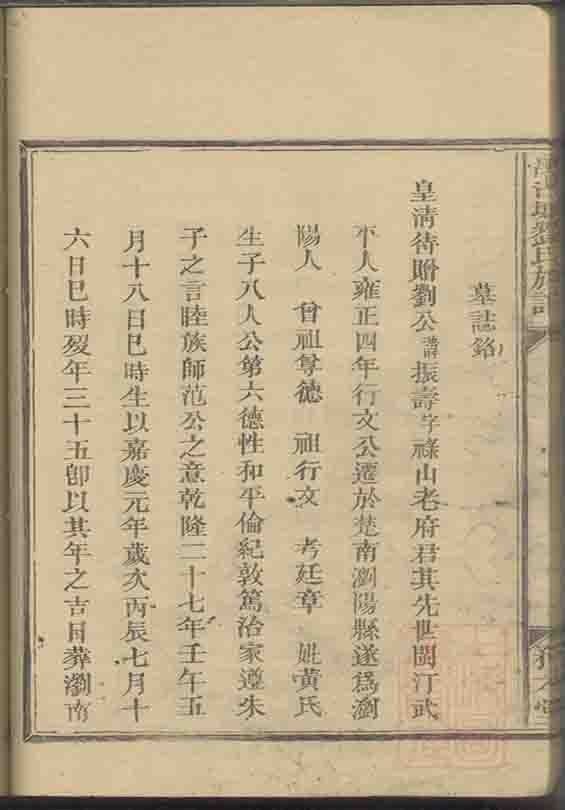 劉氏族譜
墓誌銘
皇清待贈劉公諱振壽字祿山老府君其先世閩汀武
平人雍正四年行文公遷於楚南瀏陽縣遂爲瀏
陽人 曾祖尊德 祖行文 考廷章 妣黃氏
生子八人公第六德性和平倫紀敦篤治家遵朱
子之言睦族師范公之意乾隆二十七年壬午五
月十八日巳時生以嘉慶元年歲次丙辰七月十
六日巳時歿年三十五卽以其年之吉日葬瀏南